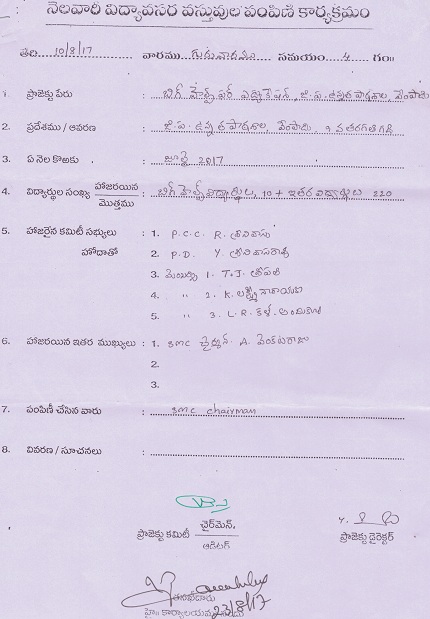 నెలవారీ విద్యావసర వస్తువుల పంపిణీ కార్యక్రమం
తేది 10/8/17 వారము గురువారము సమయం 4 గం॥
1. ప్రాజెక్టు పేరు : బిగ్ హెల్ప్ ఫర్ ఎడ్యుకేషన్, జి.ప. ఉన్నత పాఠశాల, వేంపాడు
2. ప్రదేశము / ఆవరణ : జి.ప. ఉన్నత పాఠశాల, వేంపాడు, 9 వ తరగతి గది
3. ఏ నెల కొఱకు : జూలై 2017
4. విద్యార్థుల సంఖ్య హాజరయిన మొత్తము : బిగ్ హెల్ప్ విద్యార్థులు, 10 + ఇతర విద్యార్థులు 220
5. హాజరైన కమిటీ సభ్యులు : 1. P.C.C R. శ్రీనివాసు
హోదాతో 2. P.D. Y. శ్రీనివాసరావు
3. మెంబర్స్ 1. T.J. శ్రీపతి
4. " 2. K. లక్ష్మీ నారాయణ
5. " 3. L.R.
6. హాజరయిన ఇతర ముఖ్యులు : 1. smc చైర్మన్. A. వెంకటరాజు
2.
3.
7. పంపిణీ చేసిన వారు : smc chairman
8. వివరణ / సూచనలు :
ప్రాజెక్టు కమిటీ ఛైర్మెన్,
ఆడిటర్
ప్రాజెక్టు డైరెక్టర్
23/8/17